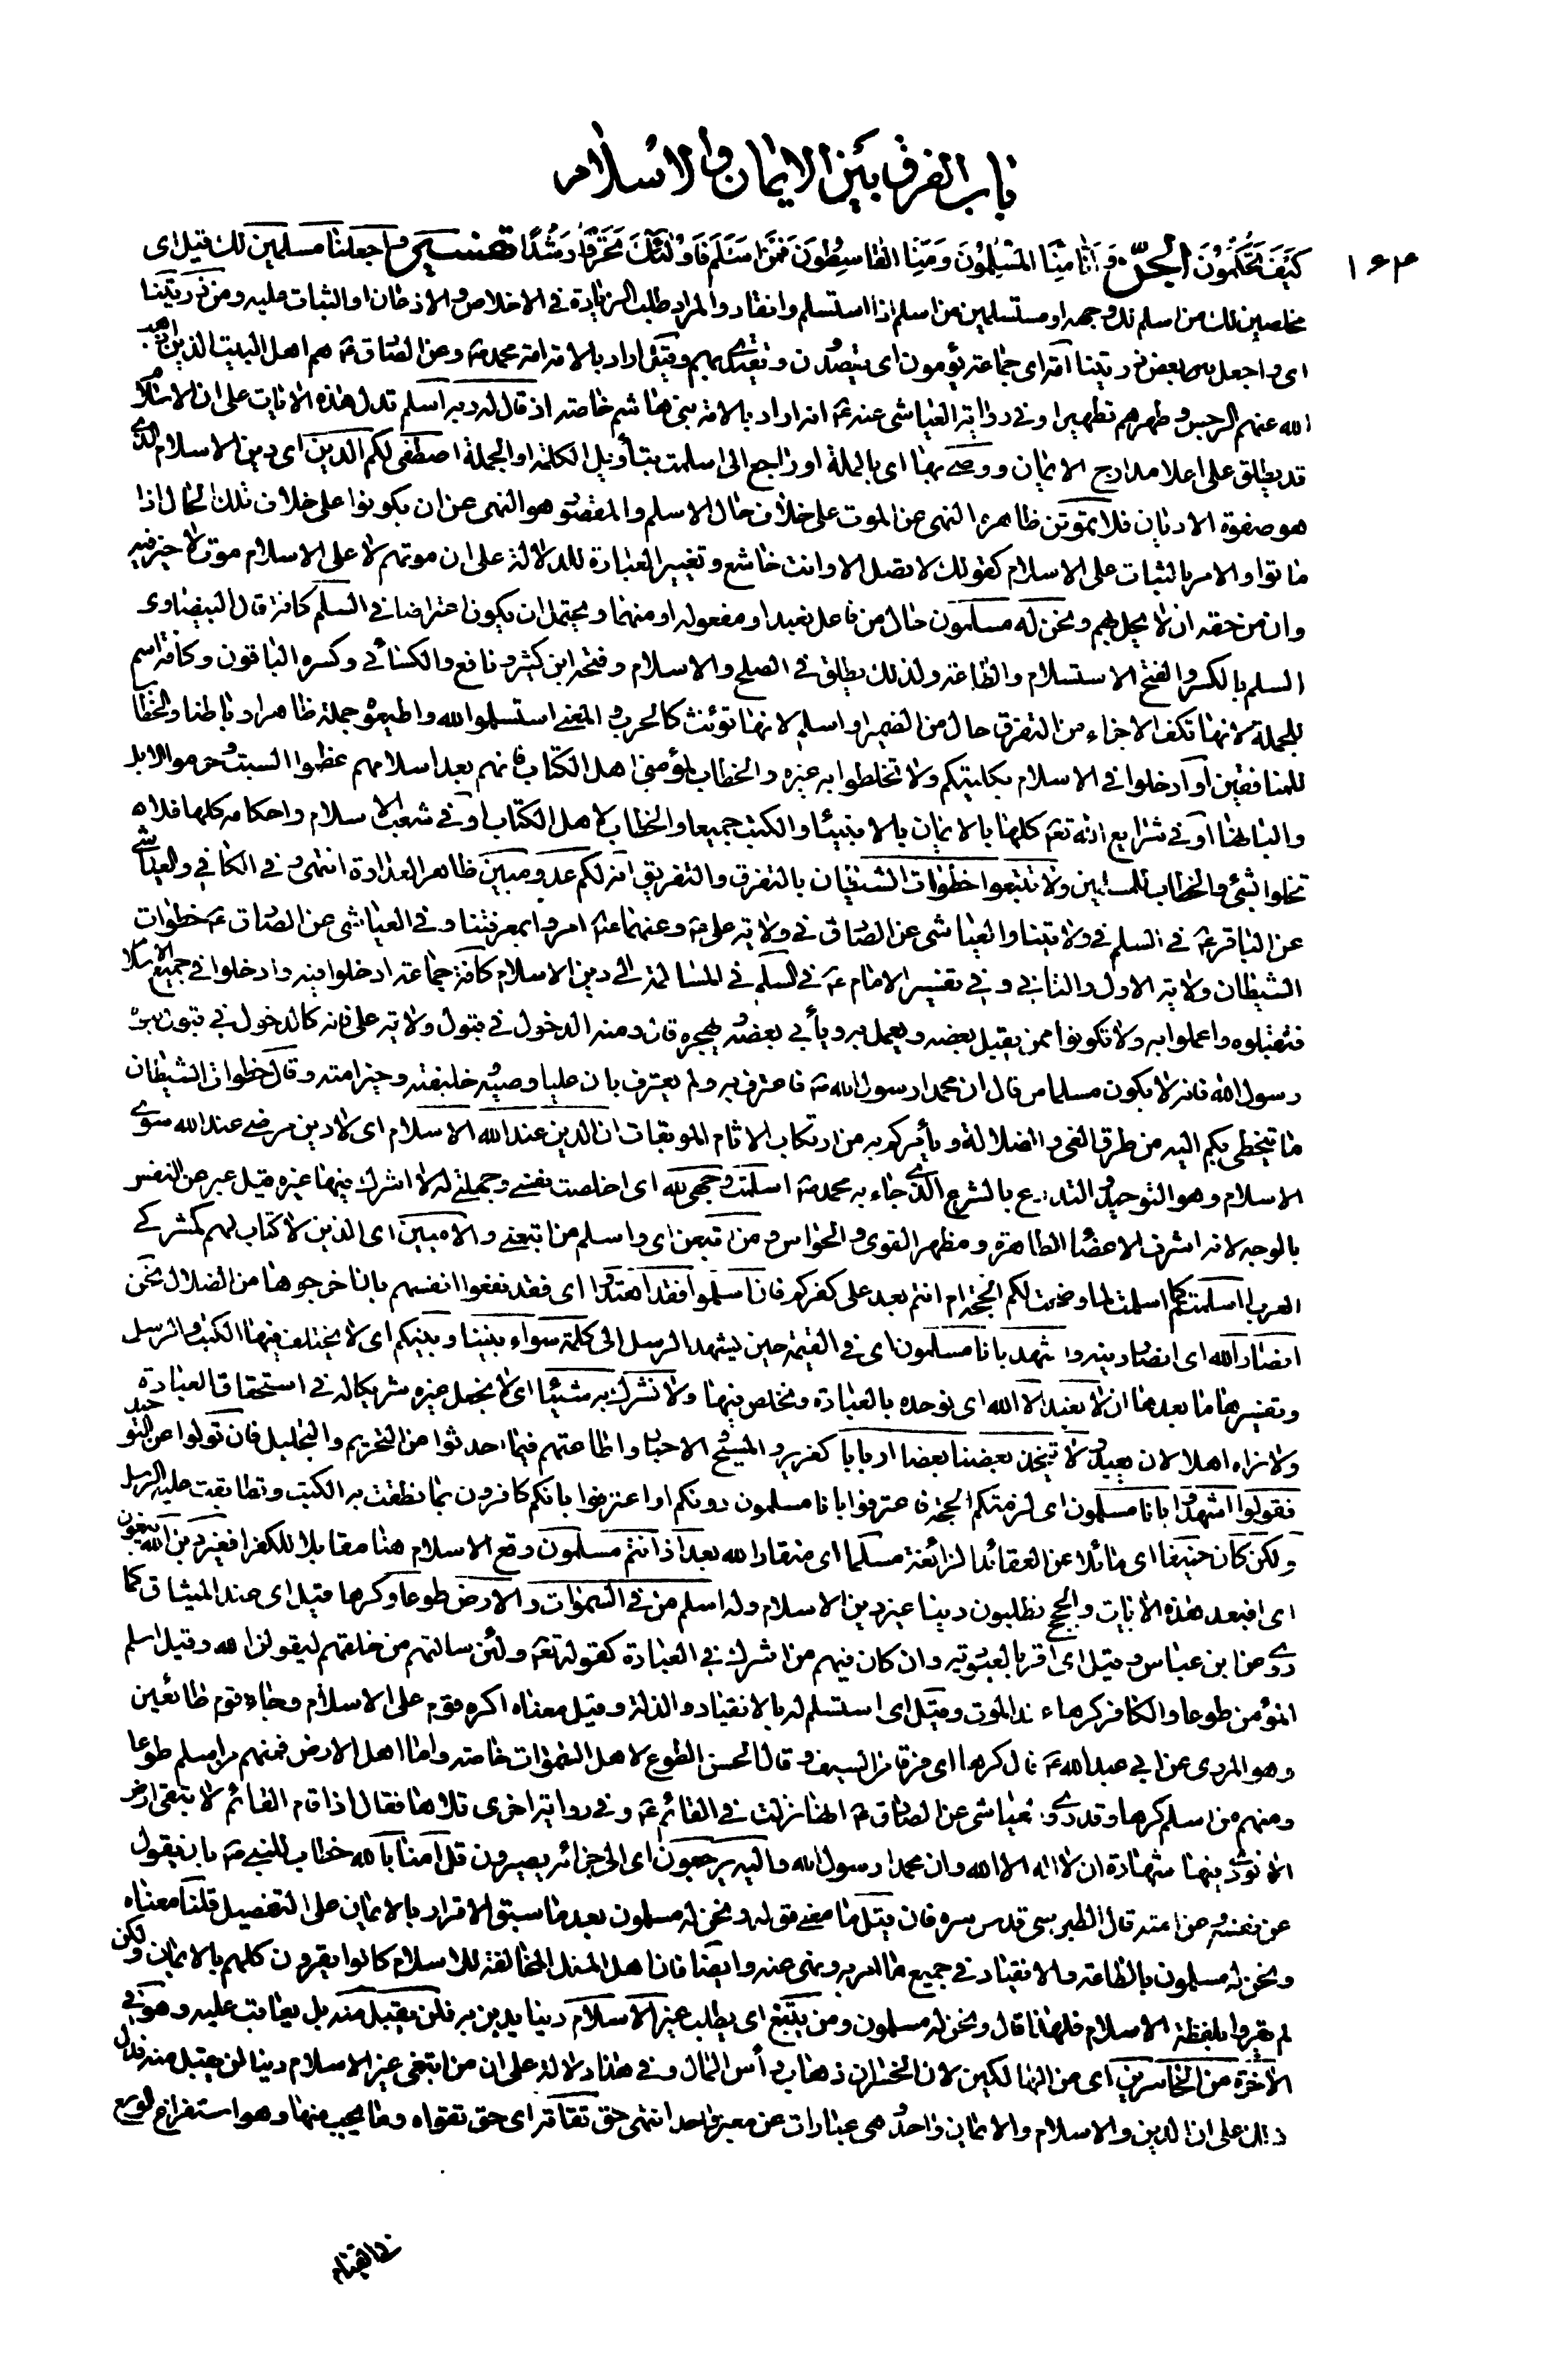 باب الفرق بين الايمان والاسلام
١٦٤
كَيْفَ تَحْكُمُونَ الجنّ وَاَنّا مِنَّا المُسْلِمُونَ وَمِنَّا القاسِطُونَ فَمَنْ اَسْلَمَ فَاُولٰئِكَ تَحَرَّوْا رَشَدًا تفسير واجعلنا مسلمين لك قيل اى
مخلصين لك من اسلم لك وجهه او مستسلمين من اسلم اذا استسلم وانقاد والمراد طلب الزيادة فى الاخلاص والاذعان او الثبات عليه ومن ذريتنا
اى واجعل بعض ذريتنا امة اى جماعة يؤمون اى يقصدون ويقتدى بهم وقيل اراد بالامة امة محمد ص وعن الصادق ع هم اهل البيت الذين اذهب
الله عنهم الرجس وطهرهم تطهيرا وفى رواية العياشى عنه ع انه اراد بالامة بنى هاشم خاصة اذ قال له ربه اسلم تدل هذه الايات على ان الاسلام
قد يطلق على اعلا مدارج الايمان ووصى بها اى بالملة او راجع الى اسلمت بتأويل الكلمة او الجملة اصطفى لكم الدين اى دين الاسلام الذى
هو صفوة الاديان فلا تموتن ظاهره النهى عن الموت على خلاف حال الاسلام والمقصود هو النهى عن ان يكونوا على خلاف تلك الحال اذا
ماتوا والامر بالثبات على الاسلام كقولك لا تصل الا وانت خاشع وتغيير العبارة للدلالة على ان موتهم لا على الاسلام موت لا خير فيه
وان من حقه ان لا يحل بهم ونحن له مسلمون حال من فاعل نعبد او مفعوله او منهما ويحتمل ان يكون اعتراضا فى السلم كافة قال البيضاوى
السلم بالكسر والفتح الاستسلام والطاعة ولذلك يطلق فى الصلح والاسلام وفتحه ابن كثير ونافع والكسائى وكسره الباقون وكافة اسم
للجملة لانها تكف الاجزاء من التفرق حال من الضمير او السلم لانها تؤنث كالحرب والمعنى استسلموا لله واطيعوه جملة ظاهرا وباطنا والخطاب
للمنافقين او ادخلوا فى الاسلام بكليتكم ولا تخلطوا به غيره والخطاب لمؤمنى اهل الكتاب فانهم بعد اسلامهم عظموا السبت وحرموا الابل
والبانها او فى شرايع الله تعم كلها بالايمان بالانبياء والكتب جميعا والخطاب لاهل الكتاب او فى شعب الاسلام واحكامه كلها فلا
تخلوا بشئ والخطاب للمسلمين ولا تتبعوا خطوات الشيطان بالتفرق والتفريق انه لكم عدو مبين ظاهر العداوة انتهى وفى الكافى والعياشى
عن الباقر ع فى السلم فى ولايتنا والعياشى عن الصادق فى ولاية على ع وعنهما ع امروا بمعرفتنا وفى العياشى عن الصادق ع خطوات
الشيطان ولاية الاول والثانى وفى تفسير الامام ع فى السلم فى المسالمة الى دين الاسلام كافة جماعة ادخلوا فيه وادخلوا فى جميع الاسلام
فتقبلوه واعملوا به ولا تكونوا ممن يقبل بعضه ويعمل به ويأبى بعضه ويهجره قال ومنه الدخول فى قبول ولاية على فانه كالدخول فى قبول نبوة
رسول الله فانه لا يكون مسلما من قال ان محمدا رسول الله ص فاعترف به ولم يعترف بان عليا وصيه وخليفته وخير امته وقال خطوات الشيطان
ما يتخطى بكم اليه من طرق الغى والضلالة ويأمركم به من ارتكاب الاثام الموبقات ان الدين عند الله الاسلام اى لا دين مرضى عند الله سوى
الاسلام وهو التوحيد والتدرع بالشرع الذى جاء به محمد ص اسلمت وجهى لله اى اخلصت نفسى وجملتى له لا اشرك فيها غيره قيل عبر عن النفس
بالوجه لانه اشرف الاعضاء الظاهرة ومظهر القوى والحواس ومن تبعن اى واسلم من تبعنى والاميين اى الذين لا كتاب لهم كمشركى
العرب ءاسلمتم كما اسلمت لما وضحت لكم الحجة ام انتم بعد على كفركم فان اسلموا فقد اهتدوا اى فقد نفعوا انفسهم بان اخرجوها من الضلال نحن
انصار الله اى انصار دينه واشهد بانا مسلمون اى فى القيمة حين يشهد الرسل الى كلمة سواء بيننا وبينكم اى لا يختلف فيها الكتب والرسل
وتفسيرها ما بعدها ان لا نعبد الا الله اى نوحده بالعبادة ونخلص فيها ولا نشرك به شيئا اى لا نجعل غيره شريكا له فى استحقاق العبادة
ولا نراه اهلا لان يعبد ولا يتخذ بعضنا بعضا اربابا كعزير والمسيح والاحبار واطاعتهم فيما احدثوا من التحريم والتحليل فان تولوا عن التوحيد
فقولوا اشهدوا بانا مسلمون اى لزمتكم الحجة فاعترفوا بانا مسلمون دونكم او اعترفوا بانكم كافرون بما نطقت به الكتب وتطابقت عليه الرسل
ولكن كان حنيفا اى مائلا عن العقائد الزائغة مسلما اى منقادا لله بعد اذ انتم مسلمون وقع الاسلام هنا مقابلا للكفر افغير دين الله يبغون
اى افبعد هذه الايات والحجج تطلبون دينا غير دين الاسلام وله اسلم من فى السموات والارض طوعا وكرها قيل اى عند الميثاق كما
روى عن ابن عباس وقيل اى اقر بالعبودية وان كان فيهم من اشرك فى العبادة كقوله تع ولئن سالتهم من خلقهم ليقولن الله وقيل اسلم
المؤمن طوعا والكافر كرها عند الموت وقيل اى استسلم له بالانقياد والذلة وقيل معناه اكره قوم على الاسلام وجاء قوم طائعين
وهو المروى عن ابى عبد الله ع قال كرها اى فرقا من السيف وقال الحسن الطوع لاهل السموات خاصة واما اهل الارض فمنهم من اسلم طوعا
ومنهم من اسلم كرها وقد روى العياشى عن الصادق ع انها نزلت فى القائم ع وفى رواية اخرى تلاها فقال اذا قام القائم لا تبقى ارض
الا نودى فيها شهادة ان لا اله الا الله وان محمدا رسول الله واليه يرجعون اى الى جزائه يصيرون قل آمنا بالله خطاب للنبى ص بان يقول
عن نفسه وعن امته قال الطبرسى قدس سره فان قيل ما معنى قوله ونحن له مسلمون بعد ما سبق الاقرار بالايمان على التفصيل قلنا معناه
ونحن له مسلمون بالطاعة والانقياد فى جميع ما امر به ونهى عنه وايضا فان اهل الملل المخالفة للاسلام كانوا يقرون كلهم بالايمان ولكن
لم يقروا بلفظة الاسلام فلهذا قال ونحن له مسلمون ومن يبتغ اى يطلب غير الاسلام دينا يدين به فلن يقبل منه بل يعاقب عليه وهو فى
الآخرة من الخاسرين اى من الهالكين لان الخسران ذهاب رأس المال وفى هذا دلالة على ان من ابتغى غير الاسلام دينا لن يقبل منه فدل
ذلك على ان الدين والاسلام والايمان واحد وهى عبارات عن معبر واحد انتهى حق تقاته اى حق تقواه وما يجب منها وهو استفراغ الوسع